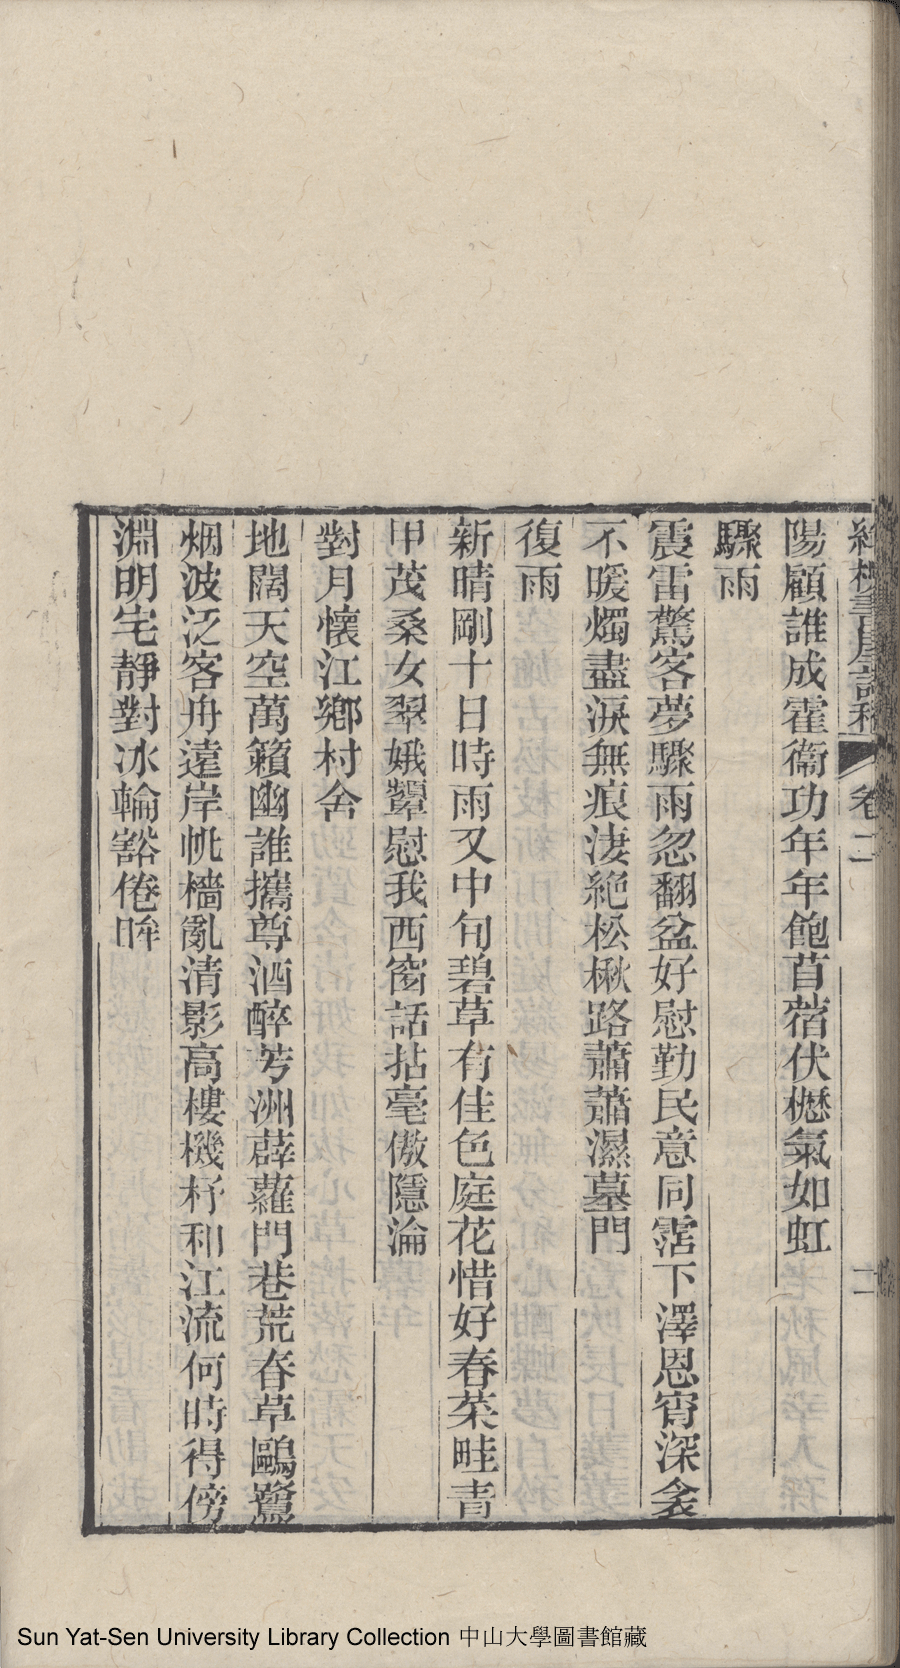 書屋詩稿 卷二 二
陽顧誰成霍衞功年年飽苜蓿伏櫪氣如虹
驟雨
震雷驚客夢驟雨忽翻盆好慰勤民意同霑下澤恩宵深衾
不暖燭盡淚無痕淒絕松楸路蕭蕭濕墓門
復雨
新晴剛十日時雨又中旬碧草有佳色庭花惜好春菜畦青
甲茂桑女翠娥顰慰我西窗話拈毫傲隱淪
對月懷江鄉村舍
地闊天空萬籟幽誰攜尊酒醉芳洲薜蘿門巷荒春草鷗鷺
烟波泛客舟遠岸帆檣亂清影高樓機杼和江流何時得傍
淵明宅靜對冰輪豁倦眸
Sun Yat-Sen University Library Collection 中山大學圖書館藏